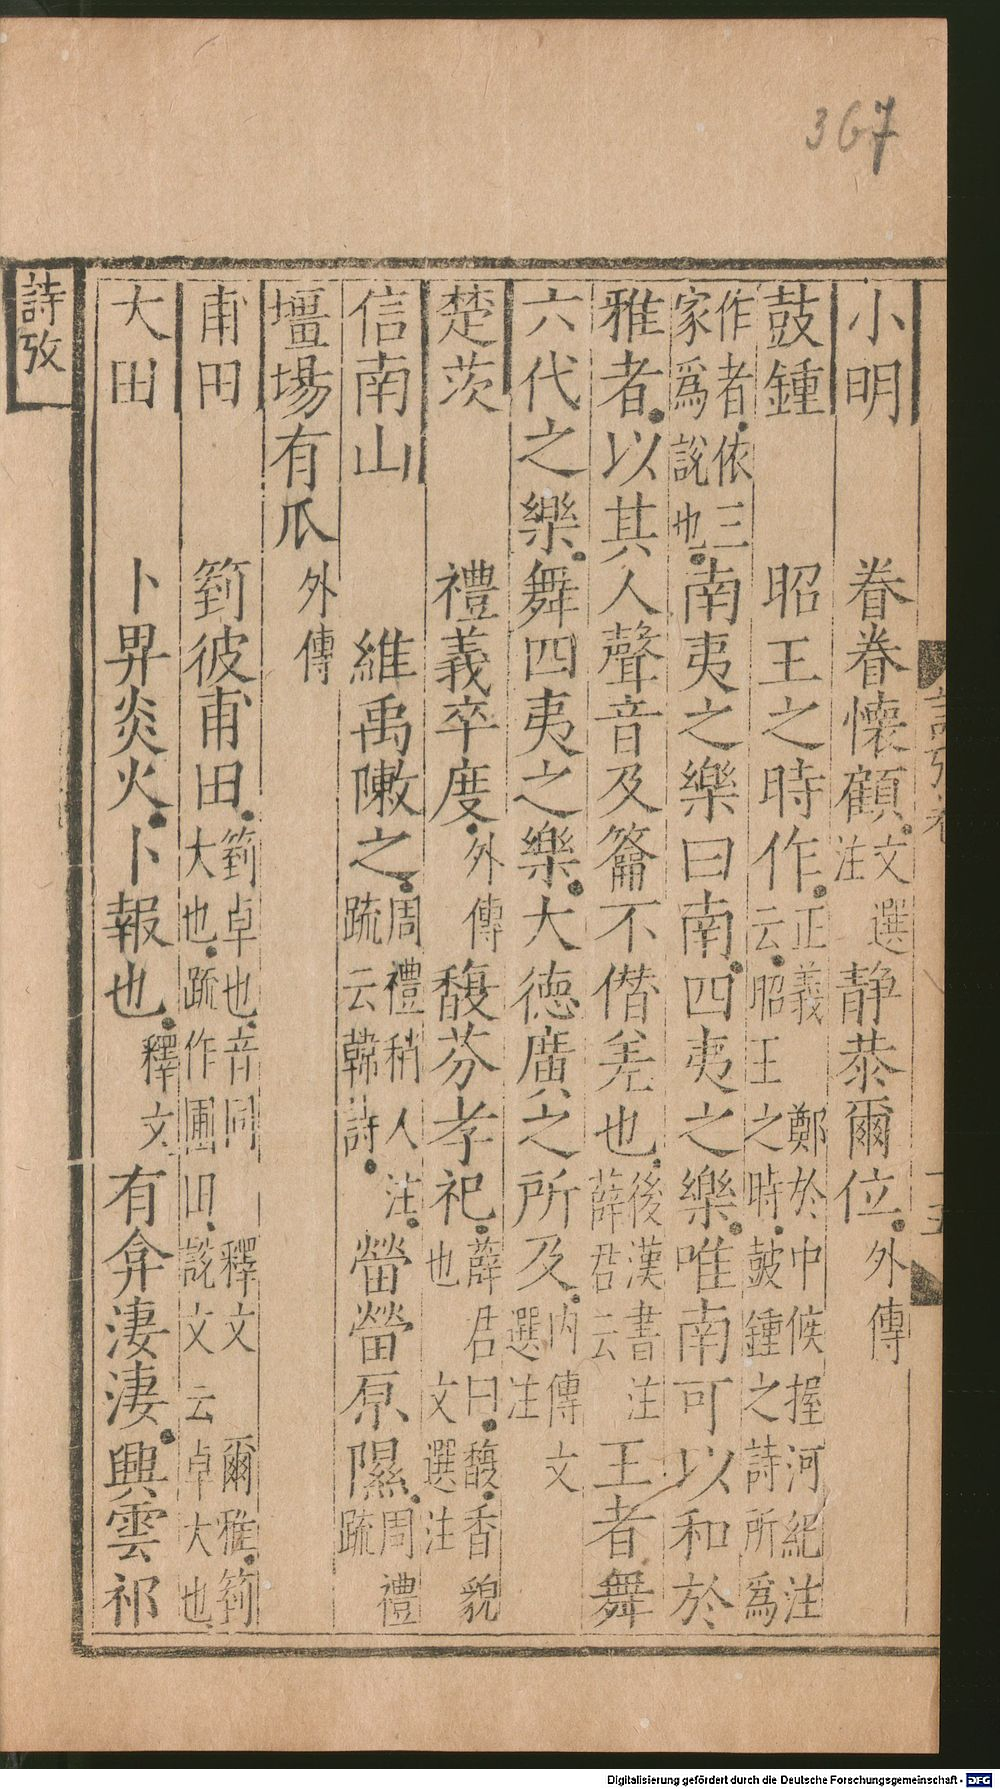 367
小明　眷眷懷顧文選注靜恭爾位外傳
鼓鍾　昭王之時作正義云昭王之時鼓鍾之詩所爲鄭於中候握河紀注
作者依三家爲說也南夷之樂曰南四夷之樂唯南可以和於
雅者以其人聲音及籥不僭差也後漢書注薛君云王者舞
六代之樂舞四夷之樂大德廣之所及內傳文選注
楚茨　禮義卒度外傳馥芬孝祀薛君曰馥香貌也文選注
信南山　維禹敶之周禮稍人注疏云韓詩䓨䓨原隰周禮疏
壃場有瓜外傳
甫田　箌彼甫田箌卓也音同釋文爾雅箌大也疏作圃田說文云卓大也
大田　卜畀炎火卜報也釋文有弇淒淒興雲祁
詩攷
Digitalisierung gefördert durch die Deutsche Forschungsgemeinschaft - DFG